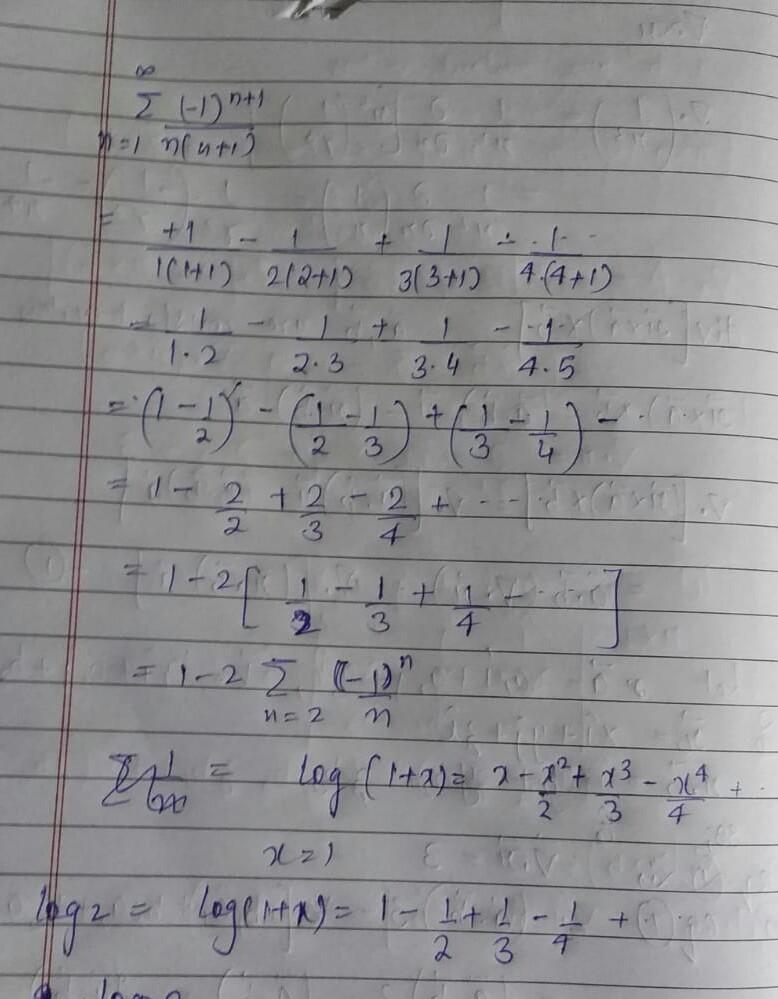 ∞
Σ (-1)^{n+1}
n=1 n(n+1)
= +1/1(1+1) - 1/2(2+1) + 1/3(3+1) - 1/4.(4+1)
= 1/1.2 - 1/2.3 + 1/3.4 - 1/4.5
= (1 - 1/2) - (1/2 - 1/3) + (1/3 - 1/4) - ...
= 1 - 2/2 + 2/3 - 2/4 + ...
= 1 - 2 [ 1/2 - 1/3 + 1/4 - ... ]
= 1 - 2 Σ_{n=2} (-1)^n/n
= log (1+x) = x - x²/2 + x³/3 - x⁴/4 + ..
x = 1
log 2 = log(1+x) = 1 - 1/2 + 1/3 - 1/4 +